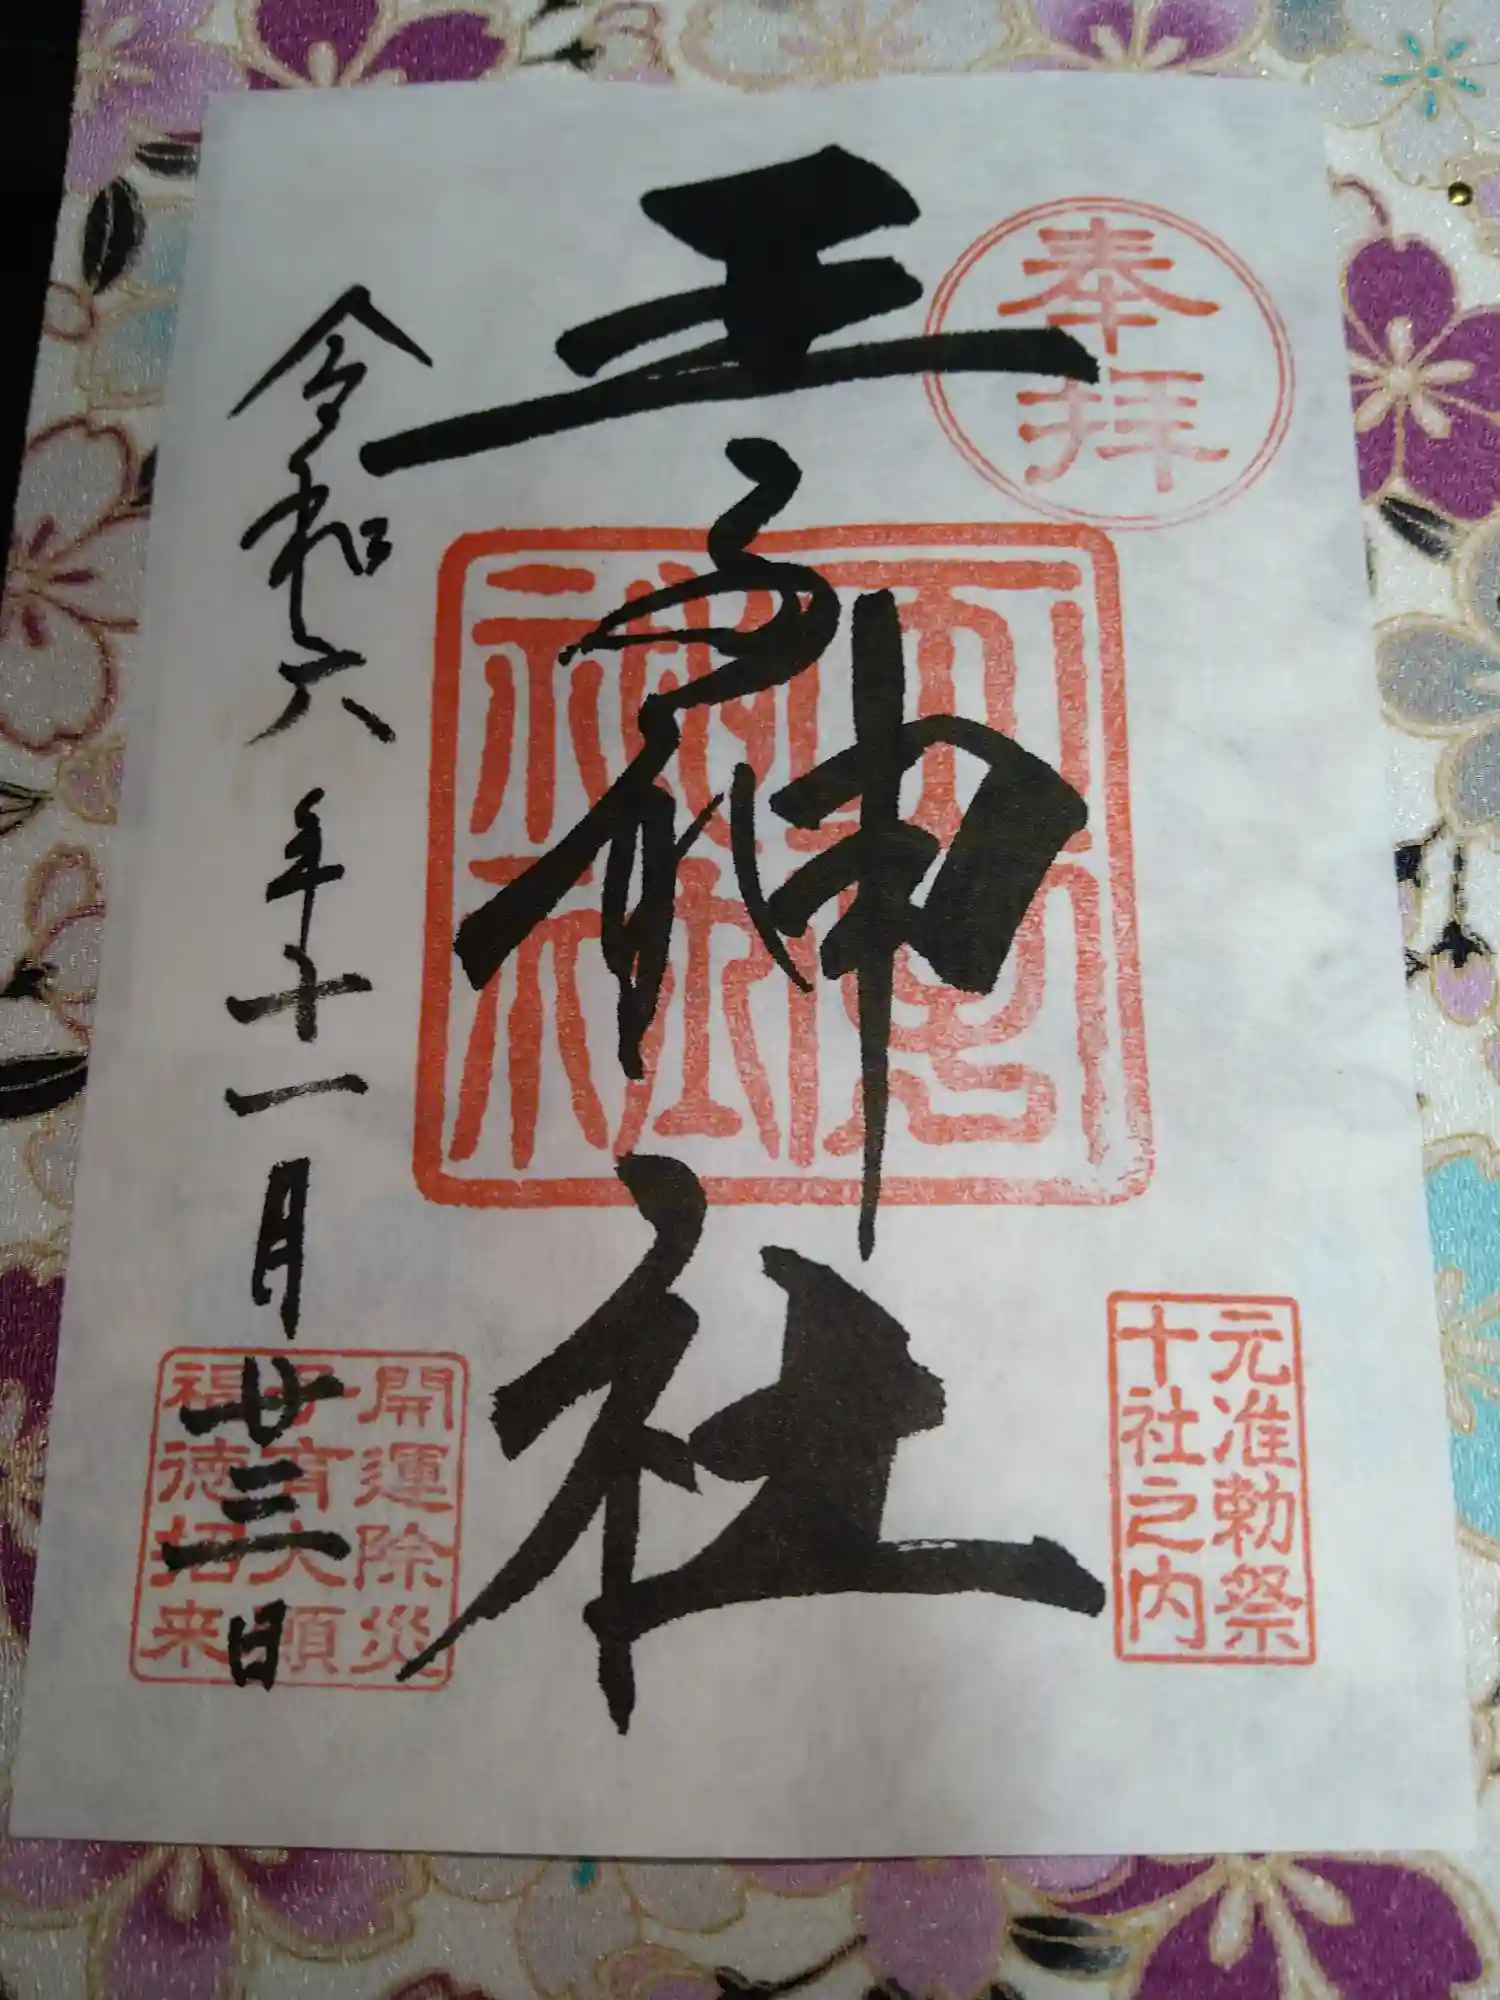 奉拝
元准勅祭
十社之内
王子神社
王子神社
令和六年十一月廿三日
開運除災
子育大願
福徳招来